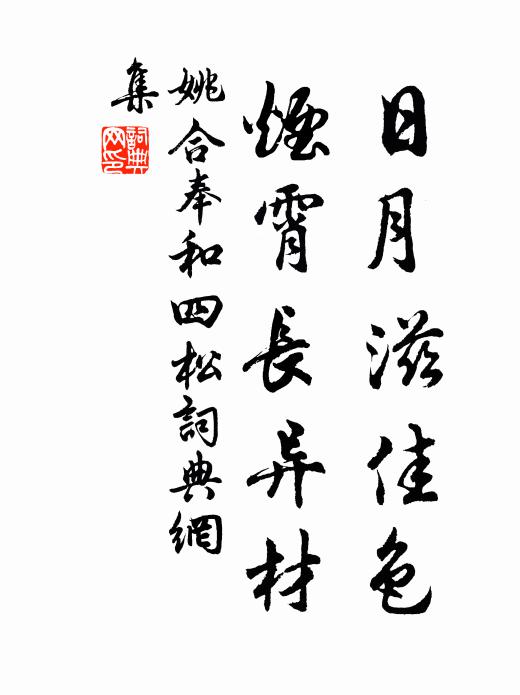 日月滋佳色
煙霄長异材
姚合奉和四松詞典網
集
詞典
网印